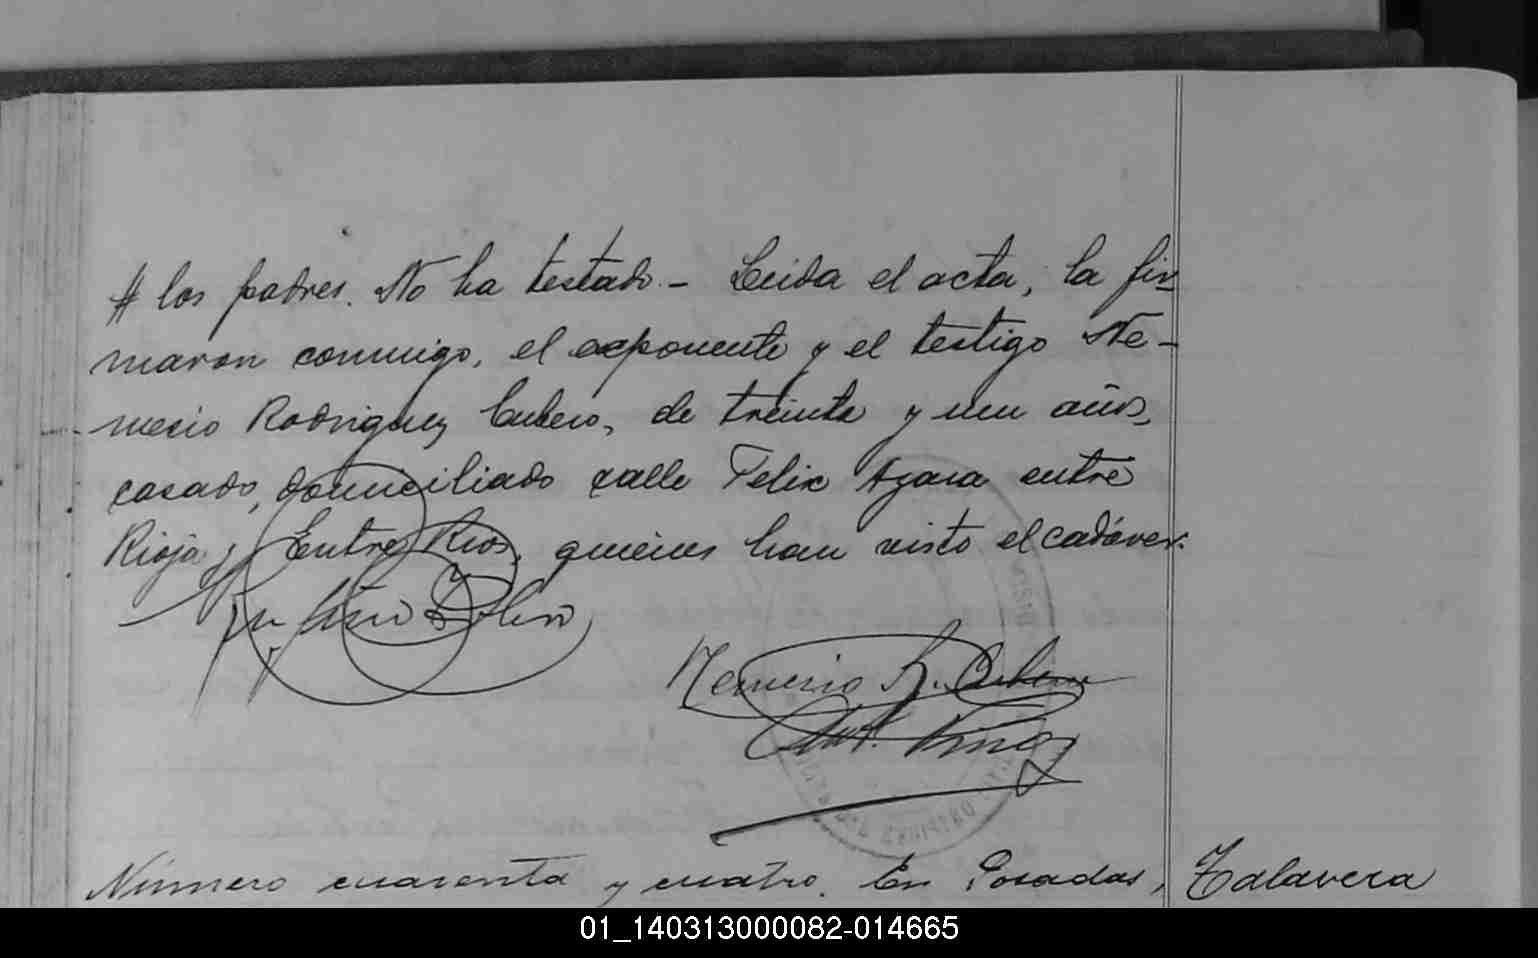 # los padres. No ha testado.- Leida el acta, la fir
maron conmigo, el exponente y el testigo Ne-
mesio Rodriguez Cubero, de treinta y un años,
casado, domiciliado calle Felix Azara entre
Rioja y Entre Rios, quienes han visto el cadáver.
Nemesio R. Cubero
Número cuarenta y cuatro. En Posadas, Talavera
01_140313000082-014665